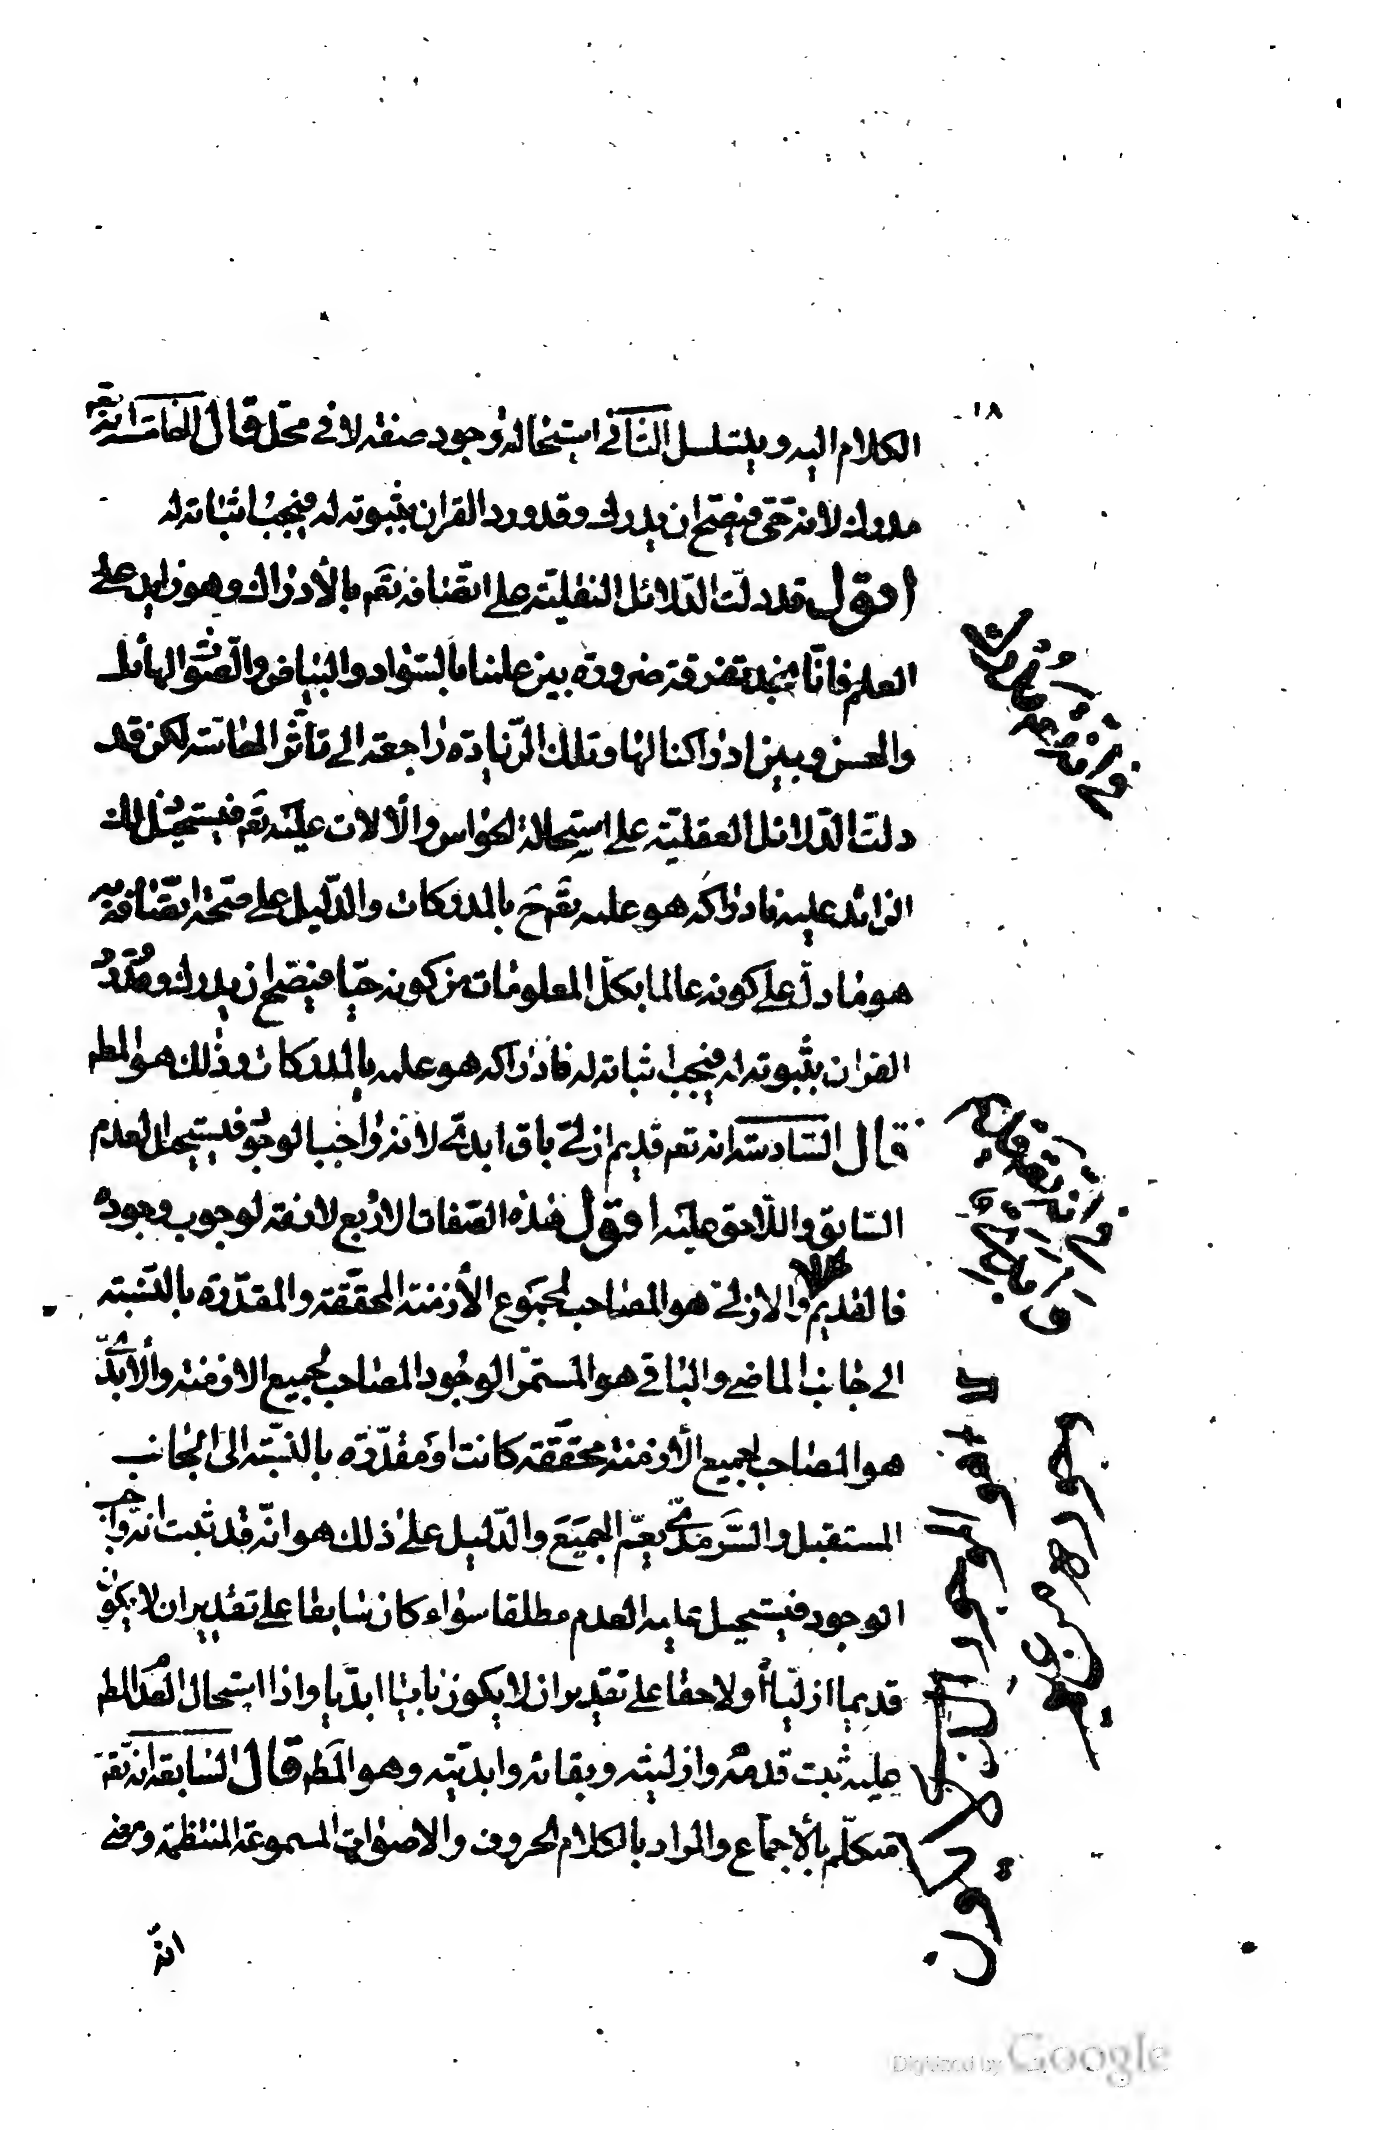 ١٨
الكلام اليه ويتسلسل الثاني استحالة وجود صفة لا في محل قال الخامسة انه تعم
مدرك لانه حى فيصح ان يدرك وقد ورد القران بثبوته له فيجب اثباته له
اقول قد دلت الدلائل النقلية على اتصافه تعم بالادراك وهو زايد على
العلم فانا نجد تفرقة ضرورة بين علمنا بالسواد والبياض والصوت الهائل
والحسن وبين ادراكنا لها وتلك الزيادة راجعة الى تاثر الحاسة لكن قد
دلت الدلائل العقلية على استحالة الحواس والالات عليه تعم فيستحيل ذلك
الزائد عليه فادراكه هو علمه تعم ح بالمدركات والدليل على صحة اتصافه به
هو ما دل على كونه عالما بكل المعلومات من كونه حيا فيصح ان يدرك وقد ورد
القران بثبوته له فيجب اثباته له فادراكه هو علمه بالمدركات وذلك هو المطم
قال السادسة انه تعم قديم ازلى باق ابدى لانه واجب الوجود فيستحيل العدم
السابق واللاحق عليه اقول هذه الصفات الاربع لازمة لوجوب وجوده
فالقديم والازلى هو المصاحب لمجموع الازمنة المحققة والمقدرة بالنسبة
الى جانب الماضى والباقى هو المستمر الوجود المصاحب لجميع الازمنة والابدى
هو المصاحب لجميع الازمنة محققة كانت او مقدرة بالنسبة الى الجانب
المستقبل والسرمدى يعم الجميع والدليل على ذلك هو انه قد ثبت انه واجب
الوجود فيستحيل عليه العدم مطلقا سواء كان سابقا على تقدير ان لا يكون
قديما ازليا او لاحقا على تقدير ان لا يكون باقيا ابديا واذا استحال العدم المطم
عليه ثبت قدمه وازليته وبقائه وابديته وهو المطم قال السابعة انه تعم
متكلم بالاجماع والمراد بالكلام الحروف والاصوات المسموعة المنتظمة ومعنى
انه
في انه تعم مدرك
في انه تعم قديم
هو الموجود الذى لا يكون
وجوده من غيره